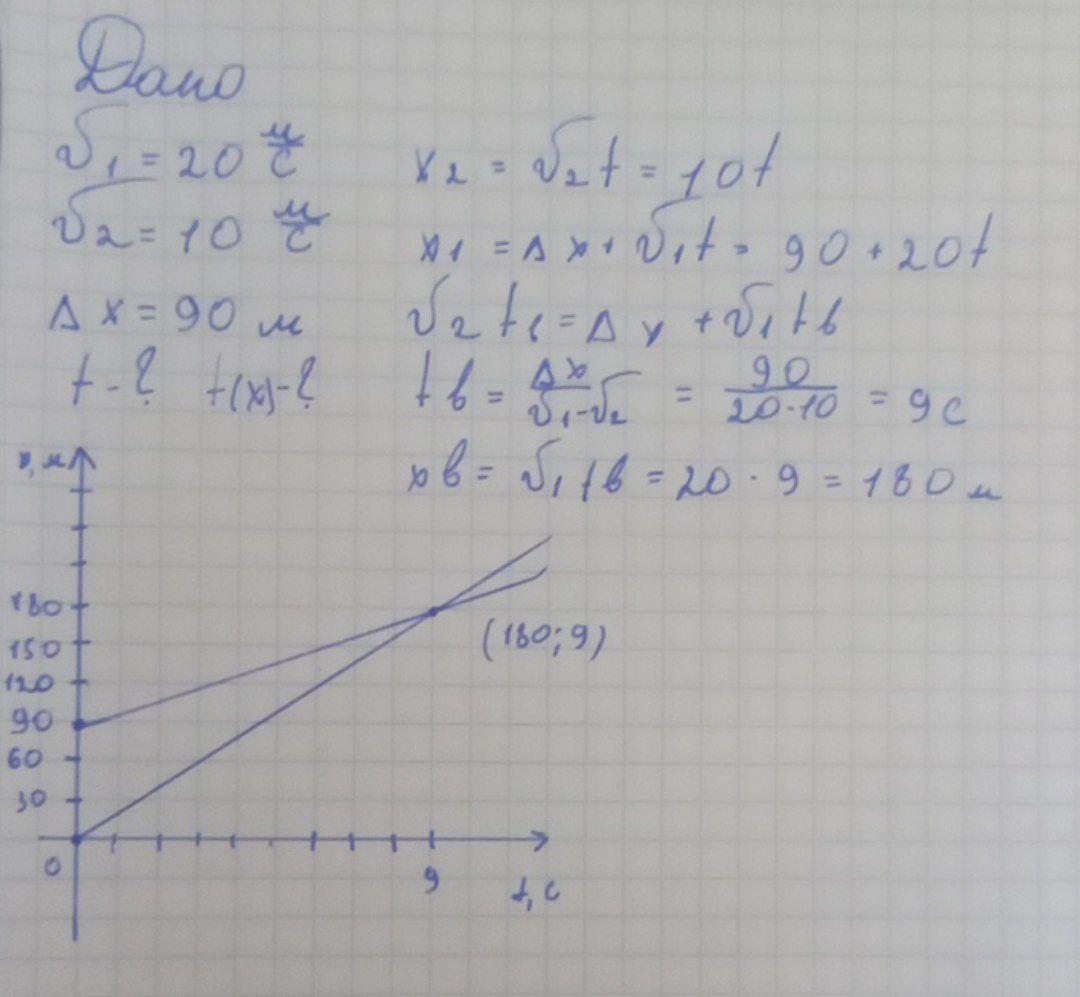 Дано
v₁ = 20 м/с
v₂ = 10 м/с
Δx = 90 м
t - ? t(x) - ?
x₂ = v₂t = 10t
x₁ = Δx + v₁t = 90 + 20t
v₂ t₁ = Δx + v₁ tв
tв = Δx/(v₁-v₂) = 90/(20-10) = 9 с
xв = v₁tв = 20 · 9 = 180 м
x, м
180
150
120
90
60
30
0
(180; 9)
9
t, с